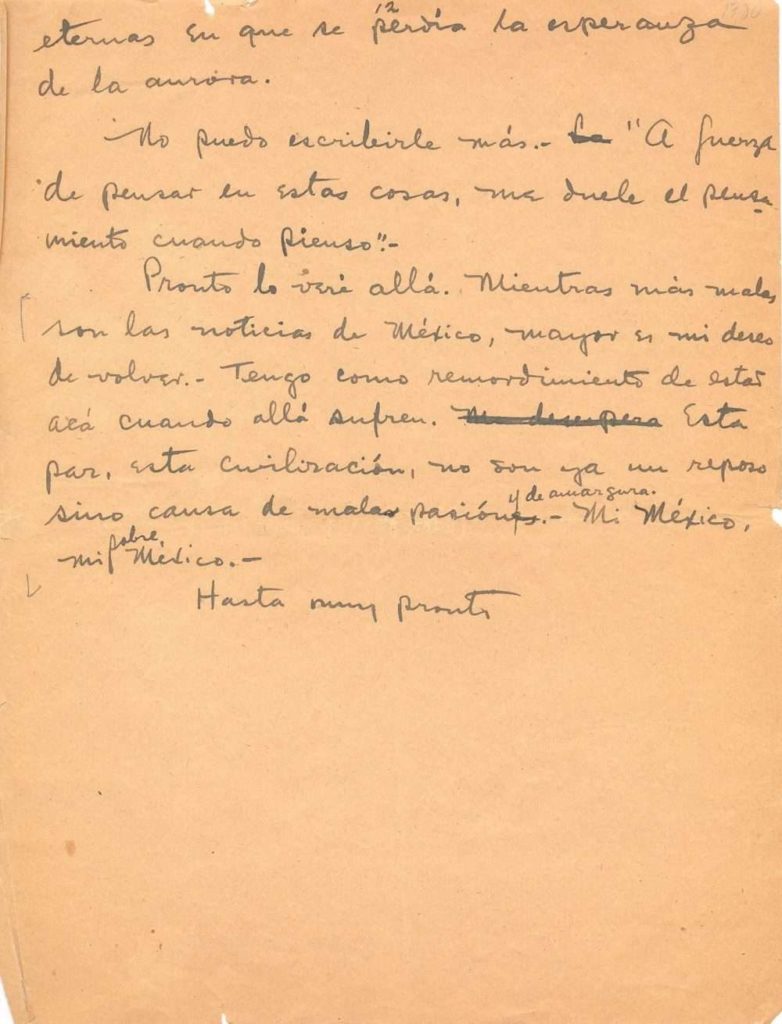 eternas en que se perdía la esperanza
de la aurora.
No puedo escribirle más.- La "A fuerza
de pensar en estas cosas, me duele el pensa-
miento cuando pienso".-
Pronto lo veré allá. Mientras más malas
son las noticias de México, mayor es mi deseo
de volver.- Tengo como remordimiento de estar
acá cuando allá sufren. Me desespera Esta
paz, esta civilización, no son ya un reposo
sino causa de malas pasiónes y de amargura.- Mi México,
mi pobre México.-
Hasta muy pronto